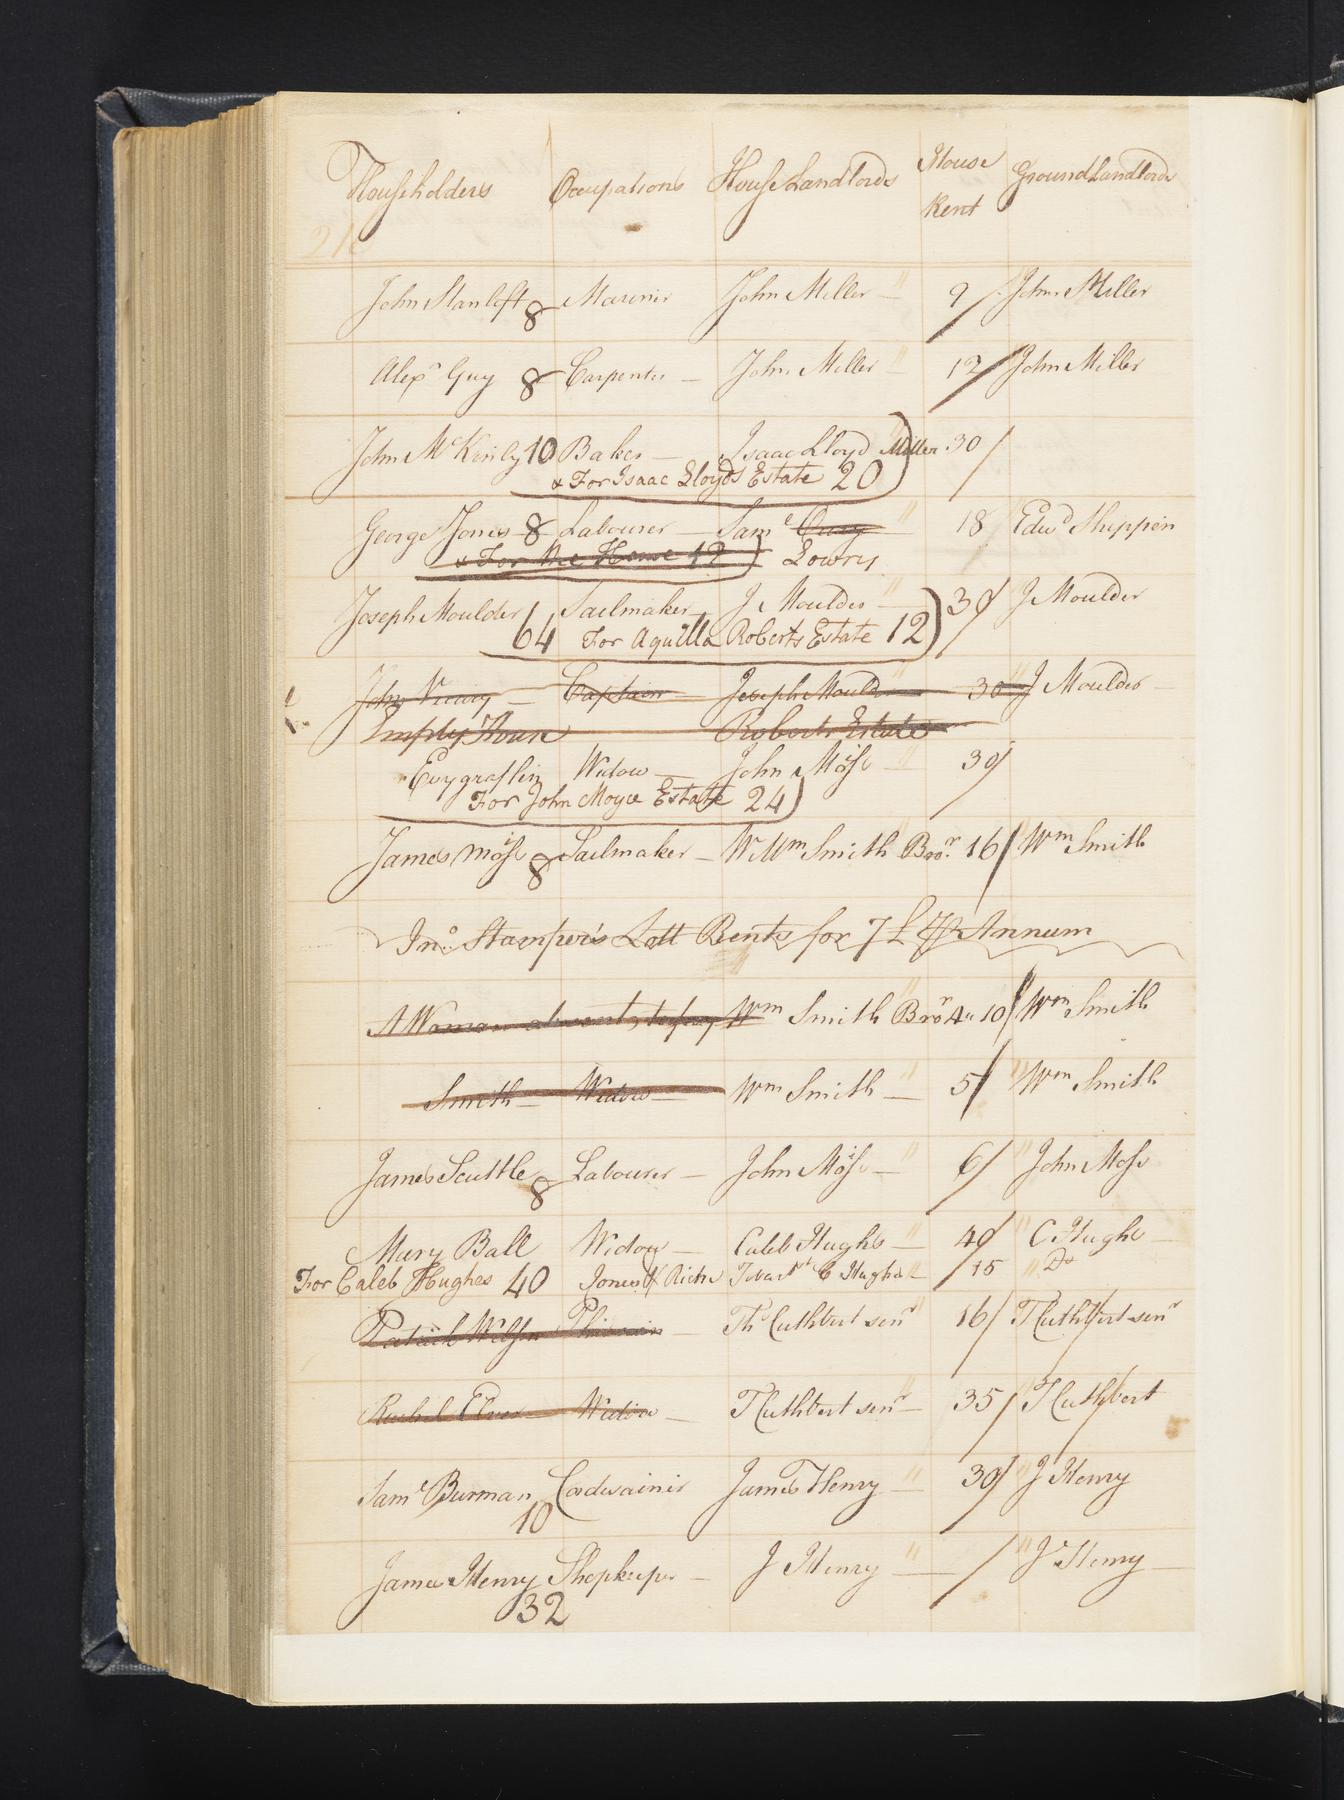 Householders Occupations House Landlords House Rent Ground Landlords
John Stanloft 8 Mariner John Miller 9 John Miller
Alexr Guy 8 Carpenter John Miller 12 John Miller
John McKinly 10 Baker Isaac Lloyd Miller 30
& For Isaac Lloyds Estate 20
George Jones 8 Labourer Saml 18 Edwd Shippen
& For the House 12 Lowry
Joseph Moulder Sailmaker J Moulder 30 J Moulder
64 For Aquilla Roberts Estate 12
John Captain Joseph Mould 30 J Moulder
Empty House Roberts Estate
Widow John Mose 30
For John Moyce Estate 24
James Mose 8 Sailmaker Wm Smith Bror 16 Wm Smith
Jno Stamper's Lott Rents for 7 £ ⅌ Annum
A Woman Wm Smith Bror 4 " 10 Wm Smith
Smith Widow Wm Smith 5 Wm Smith
James Scuttle 8 Labourer John Mose 6 John Mose
Mary Ball Widow Caleb Hughs 40 C. Hughs
For Caleb Hughes 40 Jones C Hughs 15 Do
Patrick Wilson Th Cuthbert senr 16 T Cuthbert senr
Rachel Widow T Cuthbert senr 35 T Cuthbert
Saml Burman Cordwainer James Henry 30 J Henry
10
James Henry Shopkeeper J Henry J Henry
32